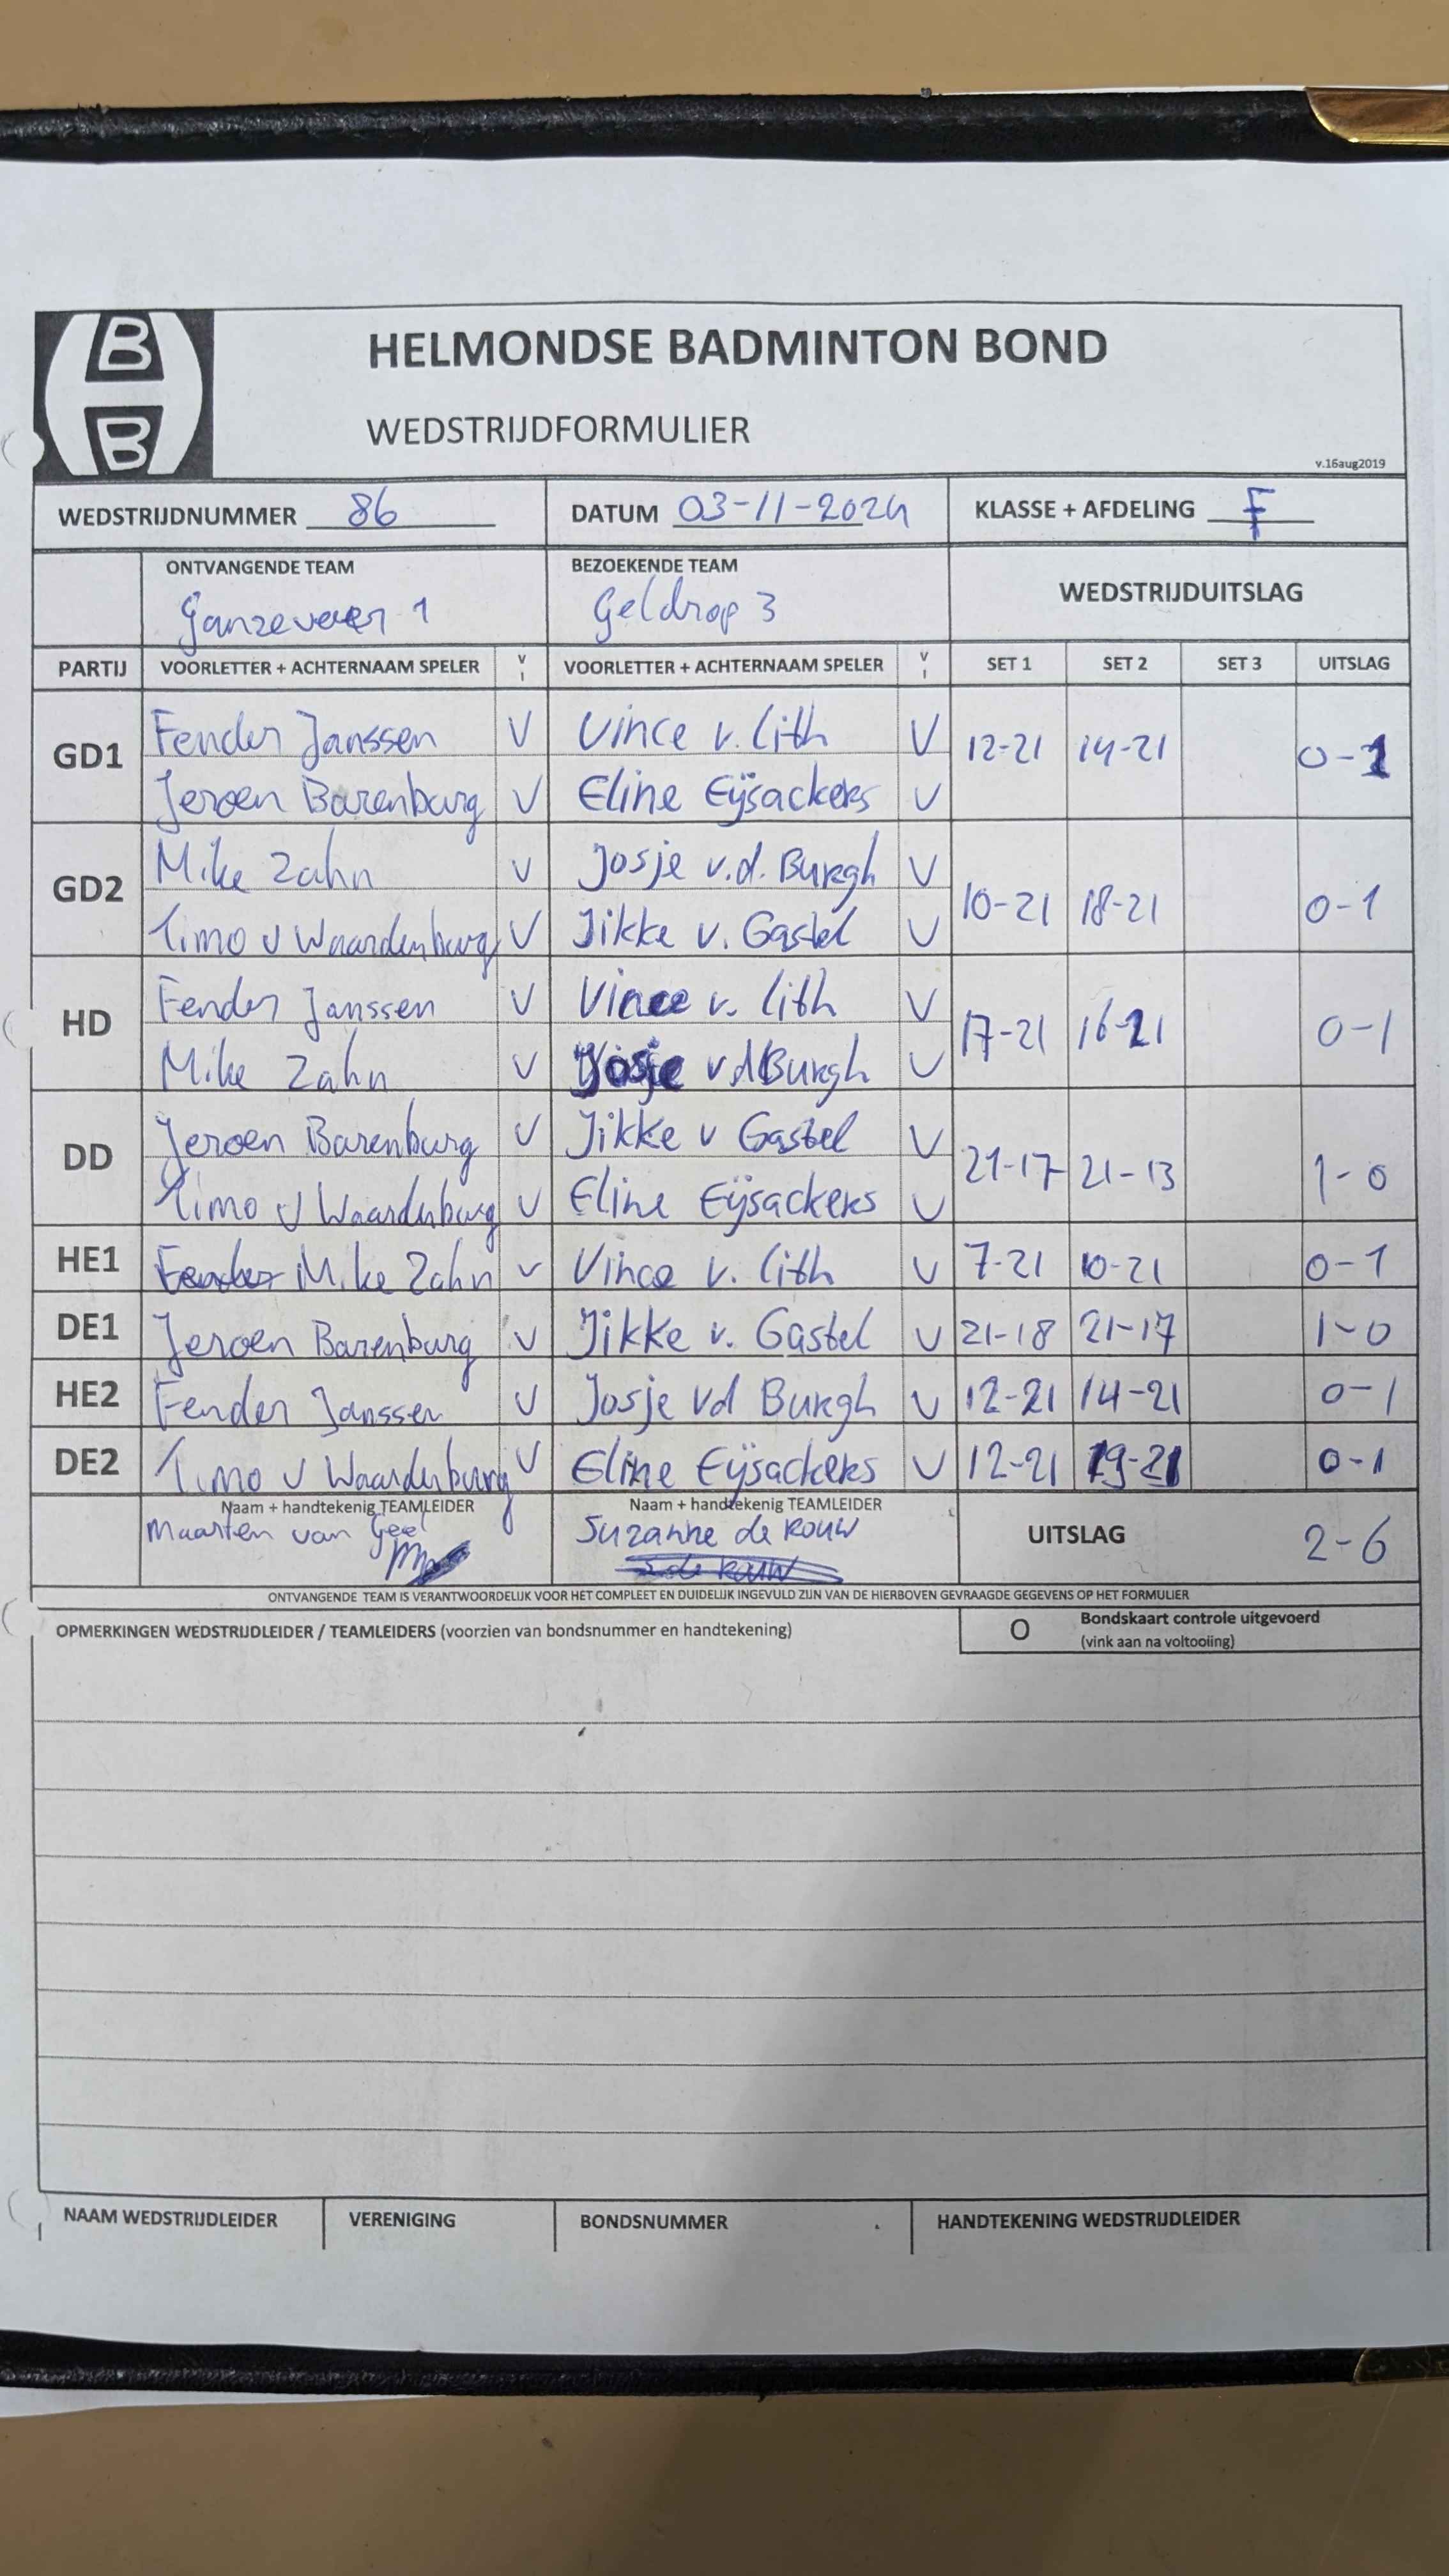 B
B
HELMONDSE BADMINTON BOND
WEDSTRIJDFORMULIER
v.16aug2019
WEDSTRIJDNUMMER 86 DATUM 03-11-2024 KLASSE + AFDELING F
ONTVANGENDE TEAM BEZOEKENDE TEAM WEDSTRIJDUITSLAG
Ganzeveer 1 Geldrop 3
PARTIJ VOORLETTER + ACHTERNAAM SPELER V I VOORLETTER + ACHTERNAAM SPELER V I SET 1 SET 2 SET 3 UITSLAG
GD1 Fender Janssen V Vince v. Lith V 12-21 14-21 0-1
Jeroen Barenburg V Eline Eÿsackers V
GD2 Mike Zahn V Josje v.d. Burgh V 10-21 18-21 0-1
Timo v Waardenburg V Jikke v. Gastel V
HD Fender Janssen V Vince v. Lith V 17-21 16-21 0-1
Mike Zahn V Josje vd Burgh V
DD Jeroen Barenburg V Jikke v Gastel V 21-17 21-13 1-0
Timo v Waardenburg V Eline Eÿsackers V
HE1 Fender Mike Zahn V Vince v. Lith V 7-21 10-21 0-1
DE1 Jeroen Barenburg V Jikke v. Gastel V 21-18 21-17 1-0
HE2 Fender Janssen V Josje vd Burgh V 12-21 14-21 0-1
DE2 Timo v Waardenburg V Eline Eÿsackers V 12-21 19-21 0-1
Naam + handtekenig TEAMLEIDER Naam + handtekenig TEAMLEIDER UITSLAG 2-6
Maarten van Geel Suzanne de Rouw
S de Rouw
ONTVANGENDE TEAM IS VERANTWOORDELIJK VOOR HET COMPLEET EN DUIDELIJK INGEVULD ZIJN VAN DE HIERBOVEN GEVRAAGDE GEGEVENS OP HET FORMULIER
OPMERKINGEN WEDSTRIJDLEIDER / TEAMLEIDERS (voorzien van bondsnummer en handtekening) O Bondskaart controle uitgevoerd
(vink aan na voltooiing)
NAAM WEDSTRIJDLEIDER VERENIGING BONDSNUMMER HANDTEKENING WEDSTRIJDLEIDER